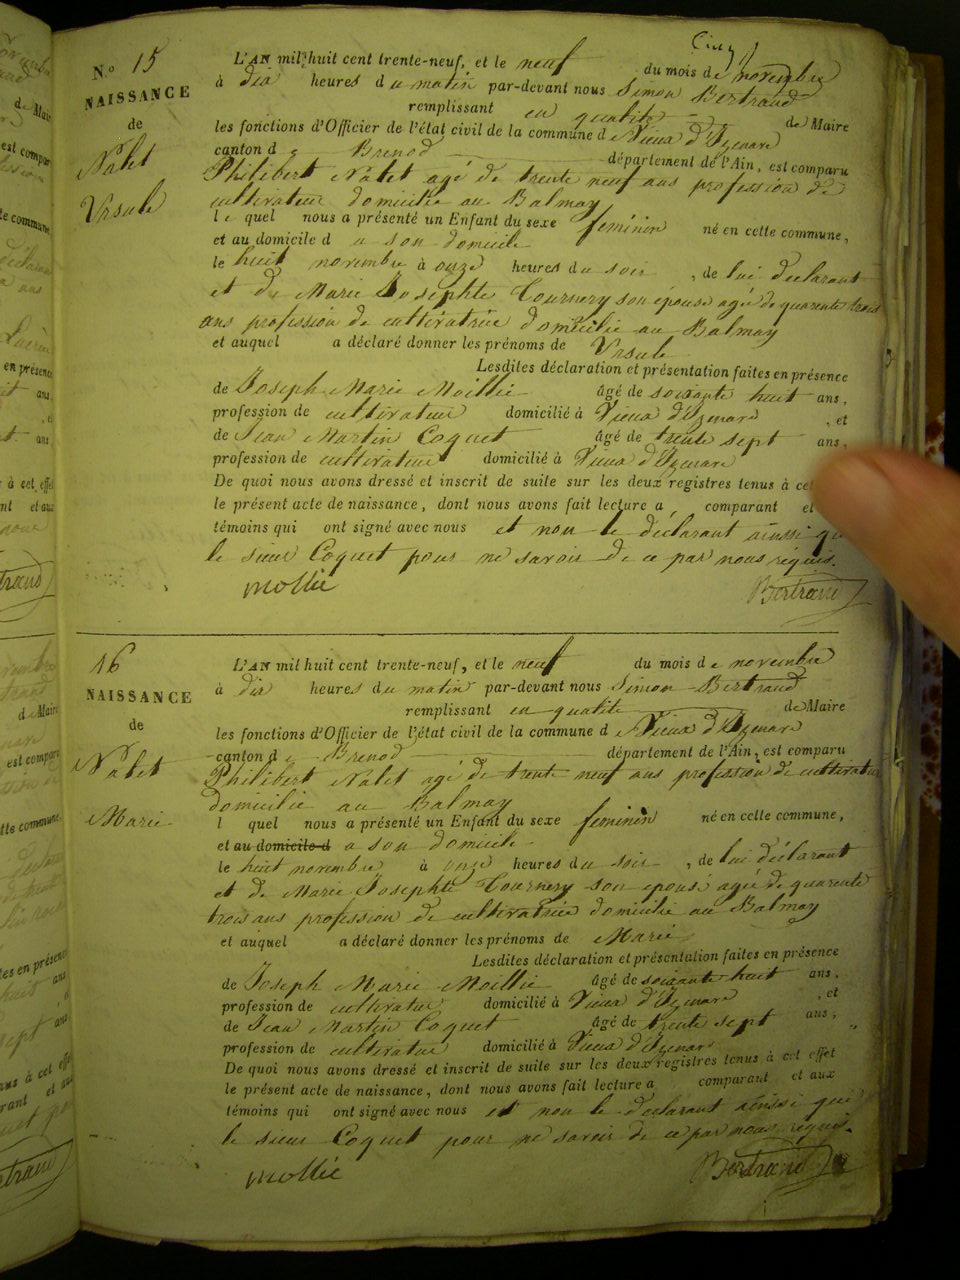 Cinq
N.º 15
NAISSANCE
de
Nalet
Ursule
L'AN mil huit cent trente-neuf, et le neuf du mois de novembre
à dix heures du matin par-devant nous Simon Bertrand
remplissant en qualité de Maire
les fonctions d'Officier de l'état civil de la commune d e Vieux d'Izenave
canton d e Brenod département de l'Ain, est comparu
Philibert Nalet agé de trente neuf ans profession de
cultivateur domicilié au Balmay
le quel nous a présenté un Enfant du sexe féminin né en cette commune,
et au domicile d a son domicile
le huit novembre à onze heures du soir , de lui déclarant
et de Marie Josephte Tournery son épouse agée de quarente trois
ans profession de cultivatrice domicilié au Balmay
et auquel a déclaré donner les prénoms de Ursule
Lesdites déclaration et présentation faites en présence
de Joseph Marie Moillie âgé de soixante huit ans,
profession de cultivateur domicilié à Vieux d'Izenave , et
de Jean Martin Coquet âgé de trente sept ans,
profession de cultivateur domicilié à Vieux d'Izenave
De quoi nous avons dressé et inscrit de suite sur les deux registres tenus à cet
le présent acte de naissance, dont nous avons fait lecture a comparant et
témoins qui ont signé avec nous et non le déclarant ainssi que
le sieur Coquet pour ne savoir de ce par nous réquis.
Mollie Bertrand
16
NAISSANCE
de
Nalet
Marie
L'AN mil huit cent trente-neuf, et le neuf du mois de novembre
à dix heures du matin par-devant nous Simon Bertrand
remplissant en qualité de Maire
les fonctions d'Officier de l'état civil de la commune d e Vieux d'Izenave
canton d e Brenod département de l'Ain, est comparu
Philibert Nalet agé de trente neuf ans profession de cultivateur
domicilié au Balmay
l quel nous a présenté un Enfant du sexe féminin né en cette commune,
et au domicile d a son domicile
le huit novembre à onze heures du soir , de lui déclarant
et de Marie Josephte Tournery son épouse agée de quarente
trois ans profession de cultivatrice domicilié au Balmay
et auquel a déclaré donner les prénoms de Marie
Lesdites déclaration et présentation faites en présence
de Joseph Marie Moillie âgé de soixante huit ans,
profession de cultivateur domicilié à Vieux d'Izenave , et
de Jean Martin Coquet âgé de trente sept ans,
profession de cultivateur domicilié à Vieux d'Izenave
De quoi nous avons dressé et inscrit de suite sur les deux registres tenus à cet effet
le présent acte de naissance, dont nous avons fait lecture a comparant et aux
témoins qui ont signé avec nous et non le déclarant ainssi que
le sieur Coquet pour ne savoir de ce par nous réquis.
Mollie Bertrand